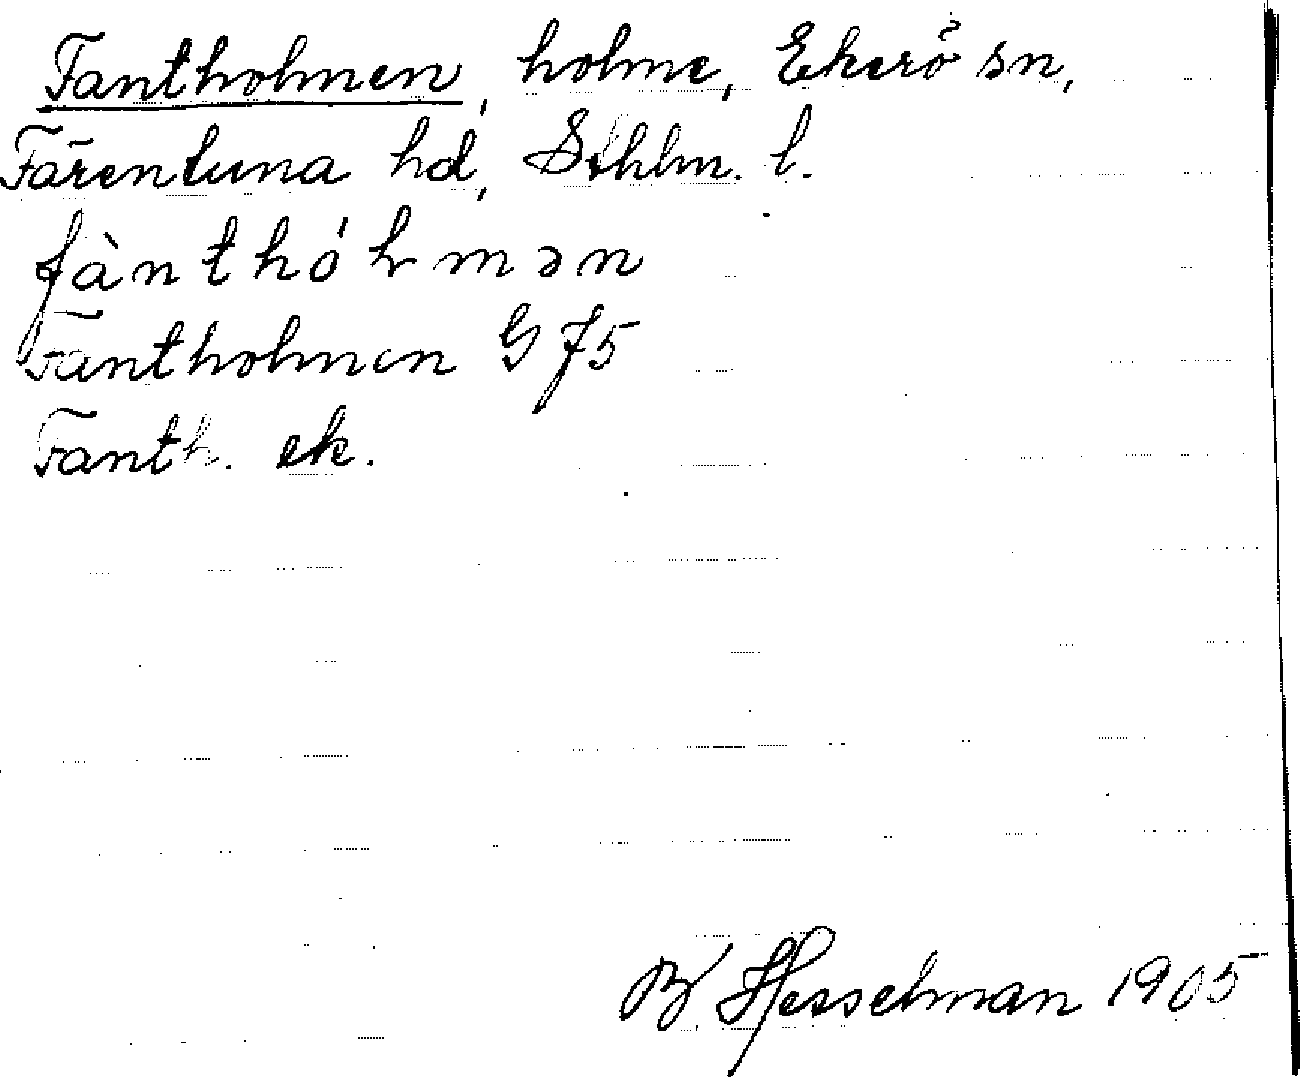 Fantholmen, holme, Ekerö sn,
Färentuna hd, Sthlm. l.
fànthólmən
Fantholmen G J5
Fanth. ek.
B Hesselman 1905